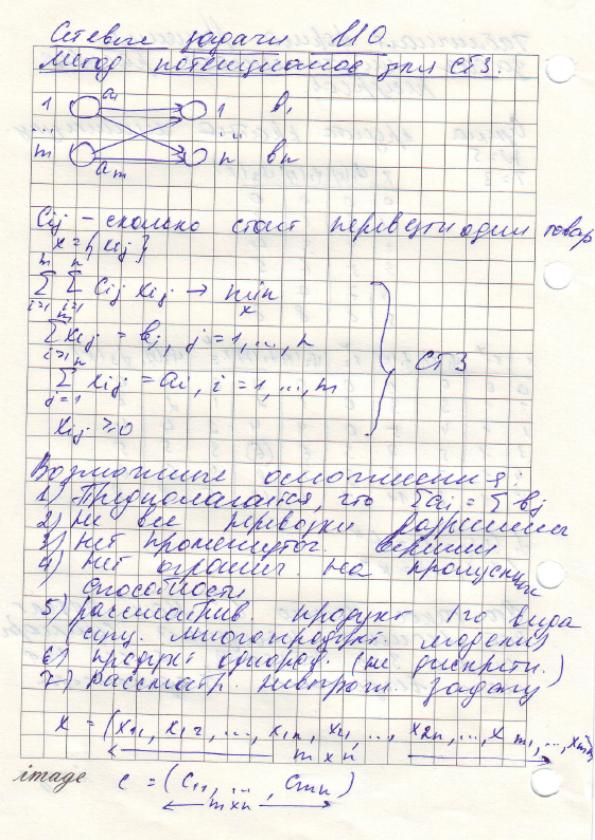 Сетевые задачи ИО
Метод потенциалов для СТЗ.
1 a₁ 1 b₁
... ...
m aₘ n bₙ
Cij – сколько стоит перевезти один товар
x = {xij}
∑ᵢ₌₁ᵐ ∑ᵢ₌₁ⁿ Cij xij → min x
∑ᵢ₌₁ᵐ xij = bj, j = 1, ..., n
СТЗ
∑ⱼ₌₁ⁿ xij = ai, i = 1, ..., m
xij ≥ 0
Возможные осложнения:
1) Предполагается, что ∑ai = ∑bj
2) Не все перевозки разрешены
3) Нет промежуточ. вершин
4) Нет огранич. на пропускные
способности
5) рассматрив. продукт 1го вида
(сущ. многопродукт. модели)
6) продукт однород. (не дискретн.)
7) Рассматр. задачу
x = (x₁₁, x₁₂, ..., x₁ₙ, x₂₁, ..., x₂ₙ, ..., xₘ₁, ..., xₘₙ)
m x n
image c = (c₁₁, ..., cₘₙ)
m x n